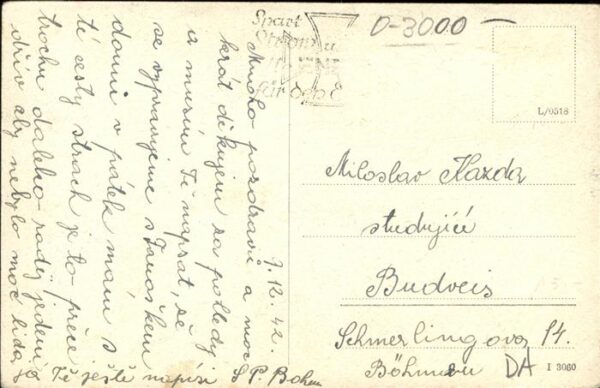 D-3000
Spart
Strom u
für
L/0518
9.12.42.
Mnoho pozdravů a moc
krát děkujem za pohledy
a musím Ti napsat, že
se vypravujeme s Fanoškem
domů v pátek mám s
té cesty strach je to přece
trochu daleko radej jedem
dřív aby nebylo moc lidí
Ti ještě napíši S P. Bohem
Miloslav Kazda
studující
Budveis
Schmerlingova 14.
Böhmen
DA
I 3060